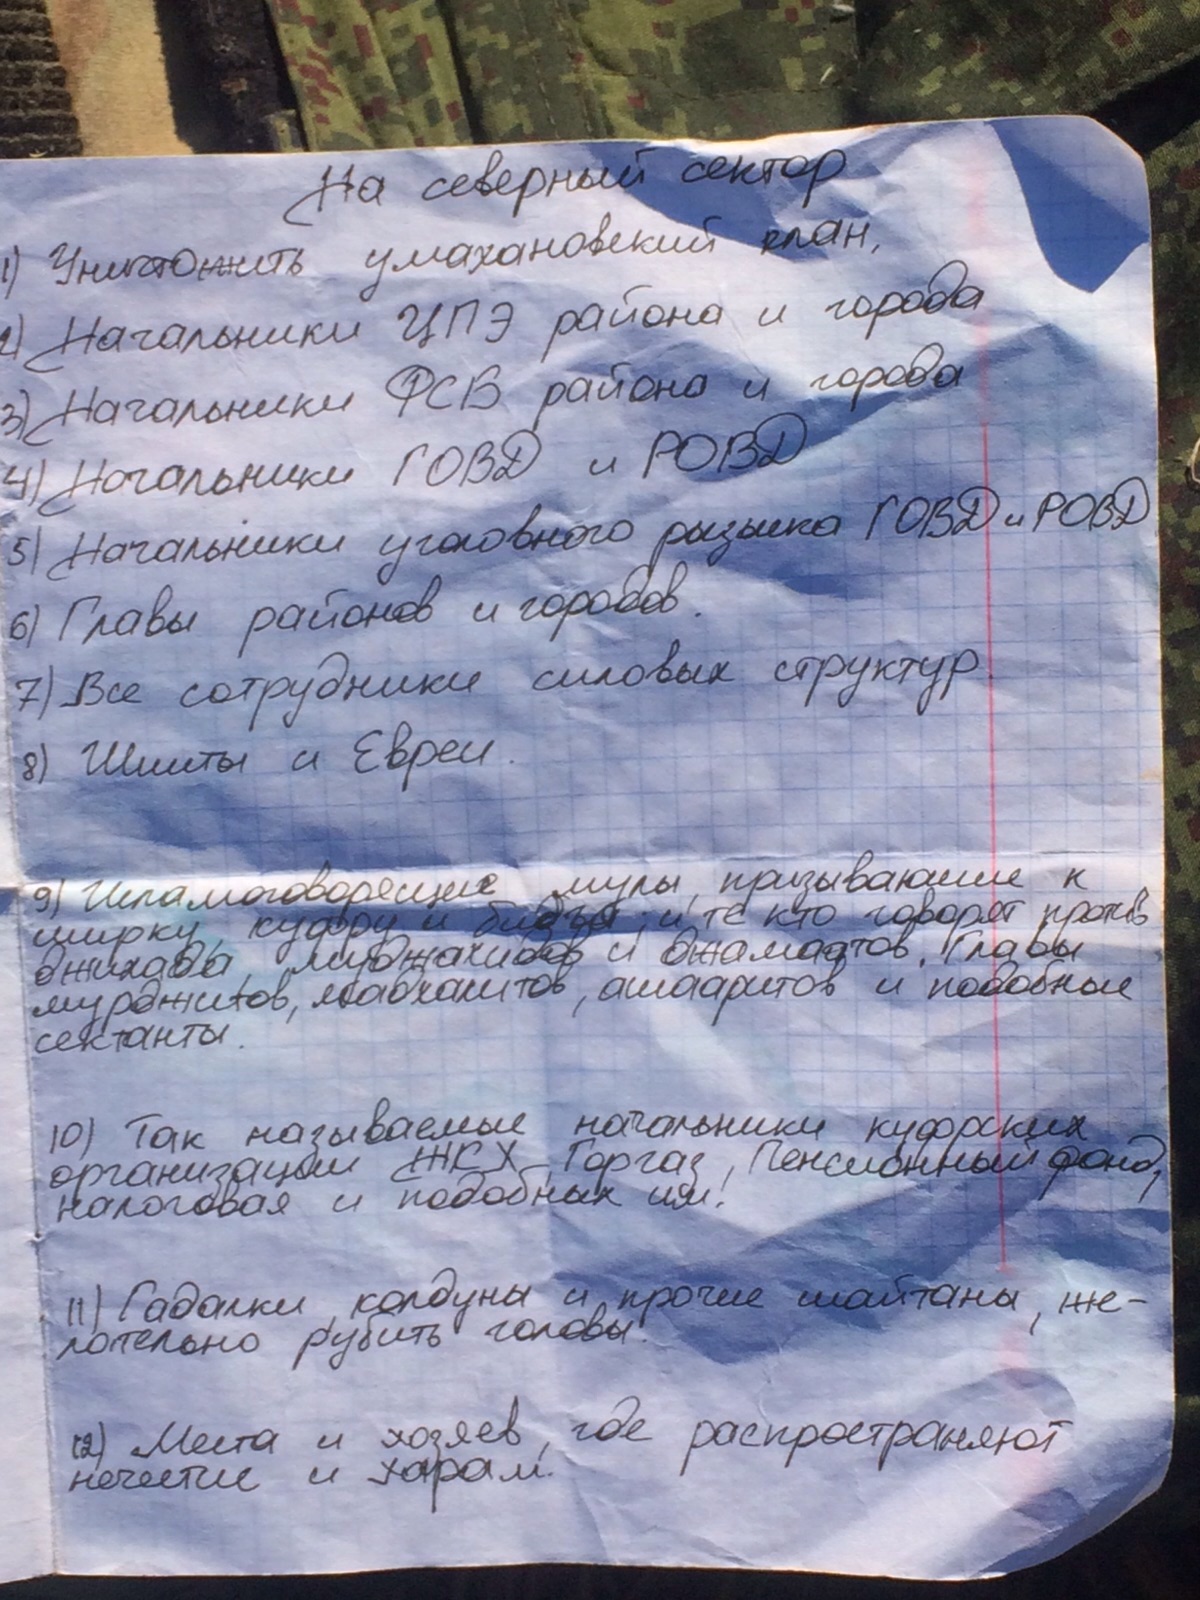 На северный сектор
1) Уничтожить умахановский клан,
2) Начальники ЦПЭ района и города
3) Начальники ФСБ района и города
4) Начальники ГОВД и РОВД
5) Начальники уголовного рызыска ГОВД и РОВД
6) Главы районов и городов.
7) Все сотрудники силовых структур.
8) Шииты и Евреи.
9) Исламоговорящие мулы, призывающие к
ширку, куфру и бидъа, и те кто говорят против
джихада, муджахидов и джамаатов. Главы
мурджиитов, мадхалитов, ашааритов и подобные
сектанты.
10) Так называемые начальники куфрских
организации ЖКХ, Горгаз, Пенсионный фонд,
налоговая и подобных им!
11) Гадалки колдуны и прочие шайтаны, же-
лательно рубить головы.
12) Места и хозяев, где распространяют
нечестие и харам.